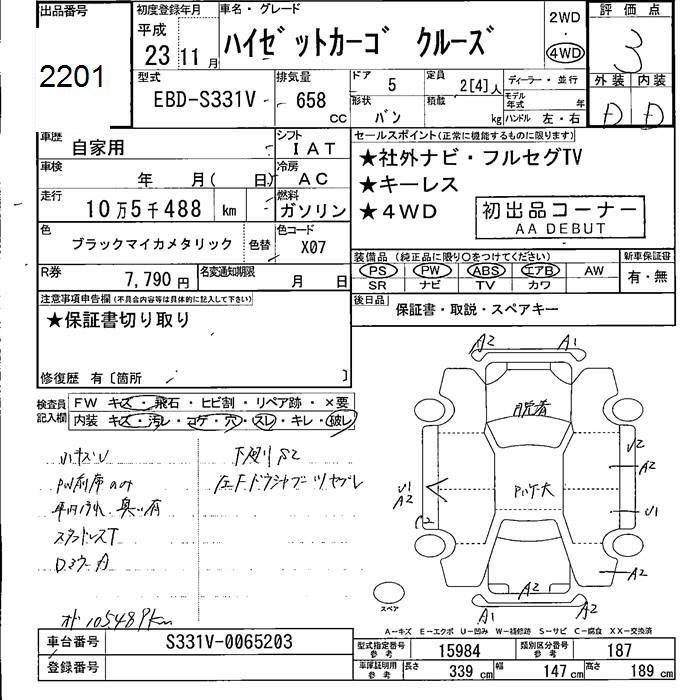 出品番号
2201
初度登録年月
平成
23年 11月
車名・グレード
ハイゼットカーゴ クルーズ
2WD
4WD
評価点
3
外装 内装
D D
型式
EBD-S331V
排気量
658
CC
ドア
5
形状
バン
定員
2[4]人
積載
kg
ディーラー・並行
モデル年式 年
ハンドル 左・右
車歴
自家用
シフト
IAT
車検
年 月( 日)
冷房
AC
走行
10万5千488 km
燃料
ガソリン
色
ブラックマイカメタリック
色替
色コード
X07
R券
7,790円
名変通知期限
月 日
セールスポイント(正常に機能するものに限ります)
★社外ナビ・フルセグTV
★キーレス
★4WD
初出品コーナー
AA DEBUT
装備品 (純正品に限り〇をつけてください)
PS PW ABS エアB AW
SR ナビ TV カワ
新車保証書
有・無
後日品
保証書・取説・スペアキー
注意事項申告欄(不具合内容等は具体的に記入して下さい)
★保証書切り取り
修復歴 有〔箇所 〕
検査員記入欄
FW キズ・飛石・ヒビ割・リペア跡・×要
内装 キズ・汚レ・コゲ・穴・スレ・キレ・破レ
小キズU
PW前席のみ
スタットレスT
下廻りS2
左Fドウシャフーツヤブレ
オド105489km
A2 A1
脱着
U2
A2
U1
A2
U1
A2
A2
A1 A2
スペア
A-キズ E-エクボ U-凹み W-補修跡 S-サビ C-腐食 XX-交換済
車台番号
S331V-0065203
登録番号
型式指定番号 参考
15984
類別区分番号 参考
187
車庫証明用 参考
長さ 339 cm
幅 147 cm
高さ 189 cm